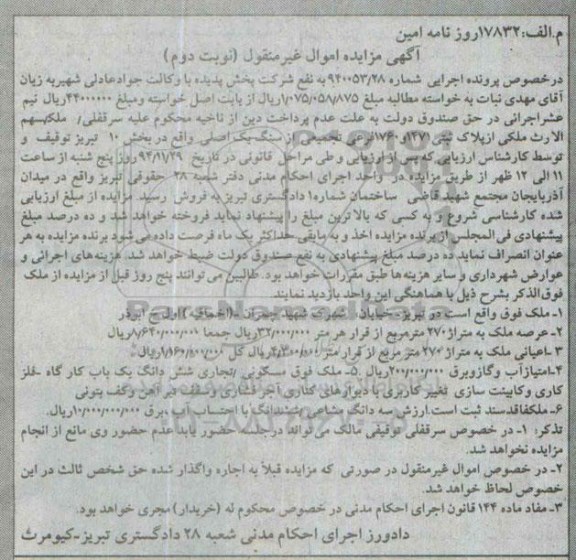 م.الف:۱۷۸۳۲روز نامه امین
آگهی مزایده اموال غیرمنقول (نوبت دوم)
درخصوص پرونده اجرایی شماره ۹۴۰۰۵۳/۲۸ به نفع شرکت پخش پدیده با وکالت جوادعادلی شهیربه زیان
آقای مهدی نبات به خواسته مطالبه مبلغ ۱/۰۷۵/۰۵۸/۸۷۵ریال از بابت اصل خواسته ومبلغ ۴۴۰۰۰۰۰۰ریال نیم
عشراجرائی در حق صندوق دولت به علت عدم پرداخت دین از ناحیه محکوم علیه سرقفلی/ ملک/سهم
الارث ملکی ازپلاک ثبتی ۱۲۷۱و۱۷۶۰فرعی تجمیعی از سنگ یک اصلی واقع در بخش ۱۰ تبریز توقیف و
توسط کارشناس ارزیابی که پس از ارزیابی و طی مراحل قانونی در تاریخ ۹۴/۱/۲۹ روز پنج شنبه از ساعت
۱۱ الی ۱۲ ظهر از طریق مزایده در واحد اجرای احکام مدنی دفتر شعبه ۲۸ حقوقی تبریز واقع در میدان
آذربایجان مجتمع شهید قاضی ساختمان شماره۱ دادگستری تبریز به فروش رسید مزایده از مبلغ ارزیابی
شده کارشناسی شروع و به کسی که بالاترین مبلغ را پیشنهاد نماید فروخته خواهد شد و ده درصد مبلغ
پیشنهادی فی المجلس از برنده مزایده اخذ و به مابقی حداکثر یک ماه فرصت داده می شود برنده مزایده به هر
عنوان انصراف نماید ده درصد مبلغ پیشنهادی به نفع صندوق دولت ضبط خواهد شد. هزینه های اجرائی و
عوارض شهرداری و سایر هزینه ها طبق مقررات خواهد بود. طالبین می توانند پنج روز قبل از مزایده از ملک
فوق الذکر بشرح ذیل با هماهنگی این واحد بازدید نمایند.
۱- ملک فوق واقع است در تبریز-خیابان شهید چمران اول خ ابوذر
۲- عرصه ملک به متراژ۲۷۰ مترمربع از قرار هر متر ۳۲/۰۰۰/۰۰۰ریال جمعا ۸/۶۴۰/۰۰۰/۰۰۰ریال
۳-اعیانی ملک به متراژ۲۷۰ متر مربع از قرار متر ریال کل
۴-امتیازآب وگازوبرق ۲۰۰/۰۰۰/۰۰۰ریال .۵- ملک فوق مسکونی /تجاری شش دانگ یک باب کار گاه -فلز
کاری وکابینت سازی تغییر کاربری با دیوارهای کناری آجر فشاری وسقف تیر آهن وکف بتونی
۶-ملکفاقدسند ثبت است.ارزش سه دانگ مشاعی ششدانگ با احتساب آب برق ۱۰/۰۰۰/۰۰۰/۰۰۰ریال.
تذکر: ۱- در خصوص سرقفلی توقیفی مالک می تواند درجلسه حضور یابد عدم حضور وی مانع از انجام
مزایده نخواهد شد.
۲- در خصوص اموال غیرمنقول در صورتی که مزایده قبلاً به اجاره واگذار شده حق شخص ثالث در این
خصوص لحاظ خواهد شد.
۳- مفاد ماده ۱۴۴ قانون اجرای احکام مدنی در خصوص محکوم له (خریدار) مجری خواهد بود.
دادورز اجرای احکام مدنی شعبه ۲۸ دادگستری تبریز-کیومرث